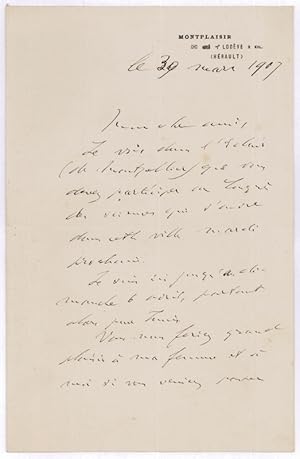 MONTPLAISIR
LODÈVE
(HÉRAULT)
le 30 mars 1907
Mon cher ami,
Je vois dans l'Eclair
(de Montpellier) que vous
devez participer au Congrès
des vins qui s'ouvre
dans cette ville mardi
prochain.
Je suis ici jusqu'au di-
manche 6 avril, partant
alors pour Tunis
Vous nous feriez grand
plaisir à ma femme et à
moi si vous veniez passer